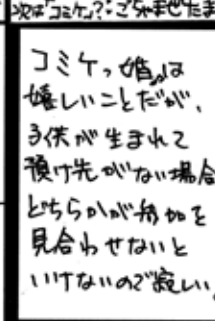 次は「コミケ」?:ごちゃまぜたま
コミケっ婚は
嬉しいことだが、
子供が生まれて
預け先がない場合
どちらかが参加を
見合わせないと
いけないので寂しい。